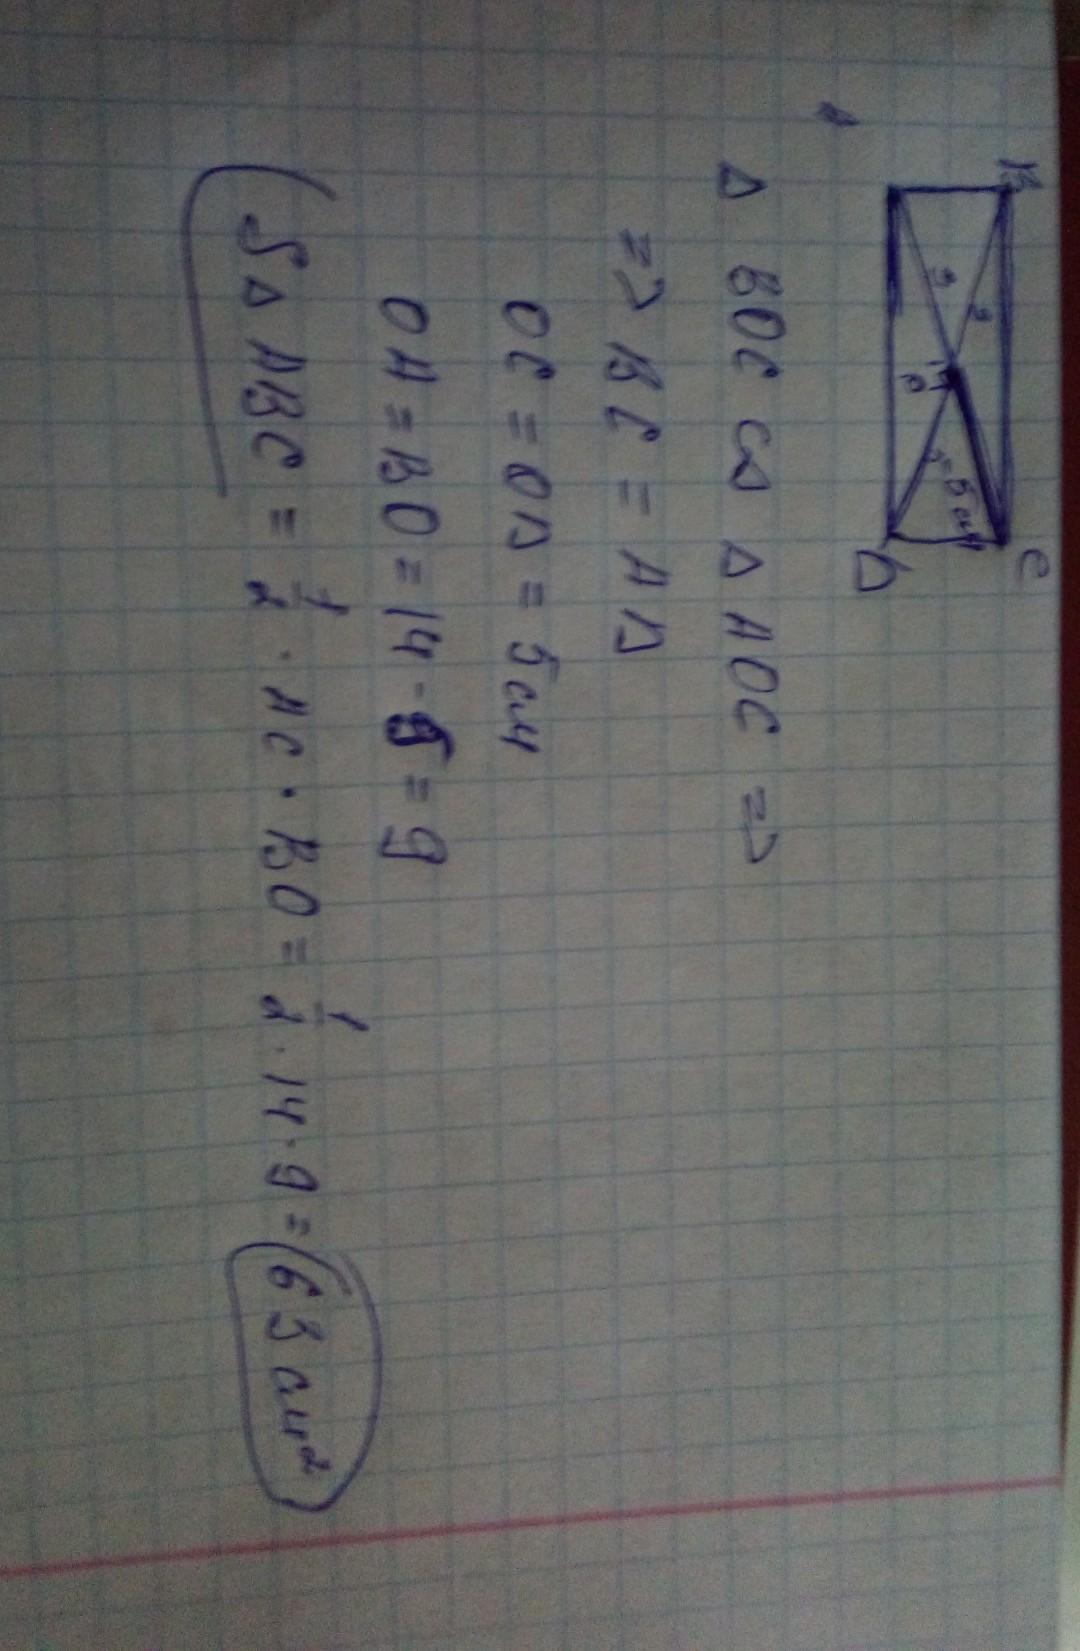 B
C
9
9
O
5 см
D
Δ BOC ∾ Δ AOC =>
=> BC = AD
OC = OD = 5см
OA = BO = 14 - 5 = 9
SΔ ABC = 1/2 · AC · BO = 1/2 · 14 · 9 = 63 см²